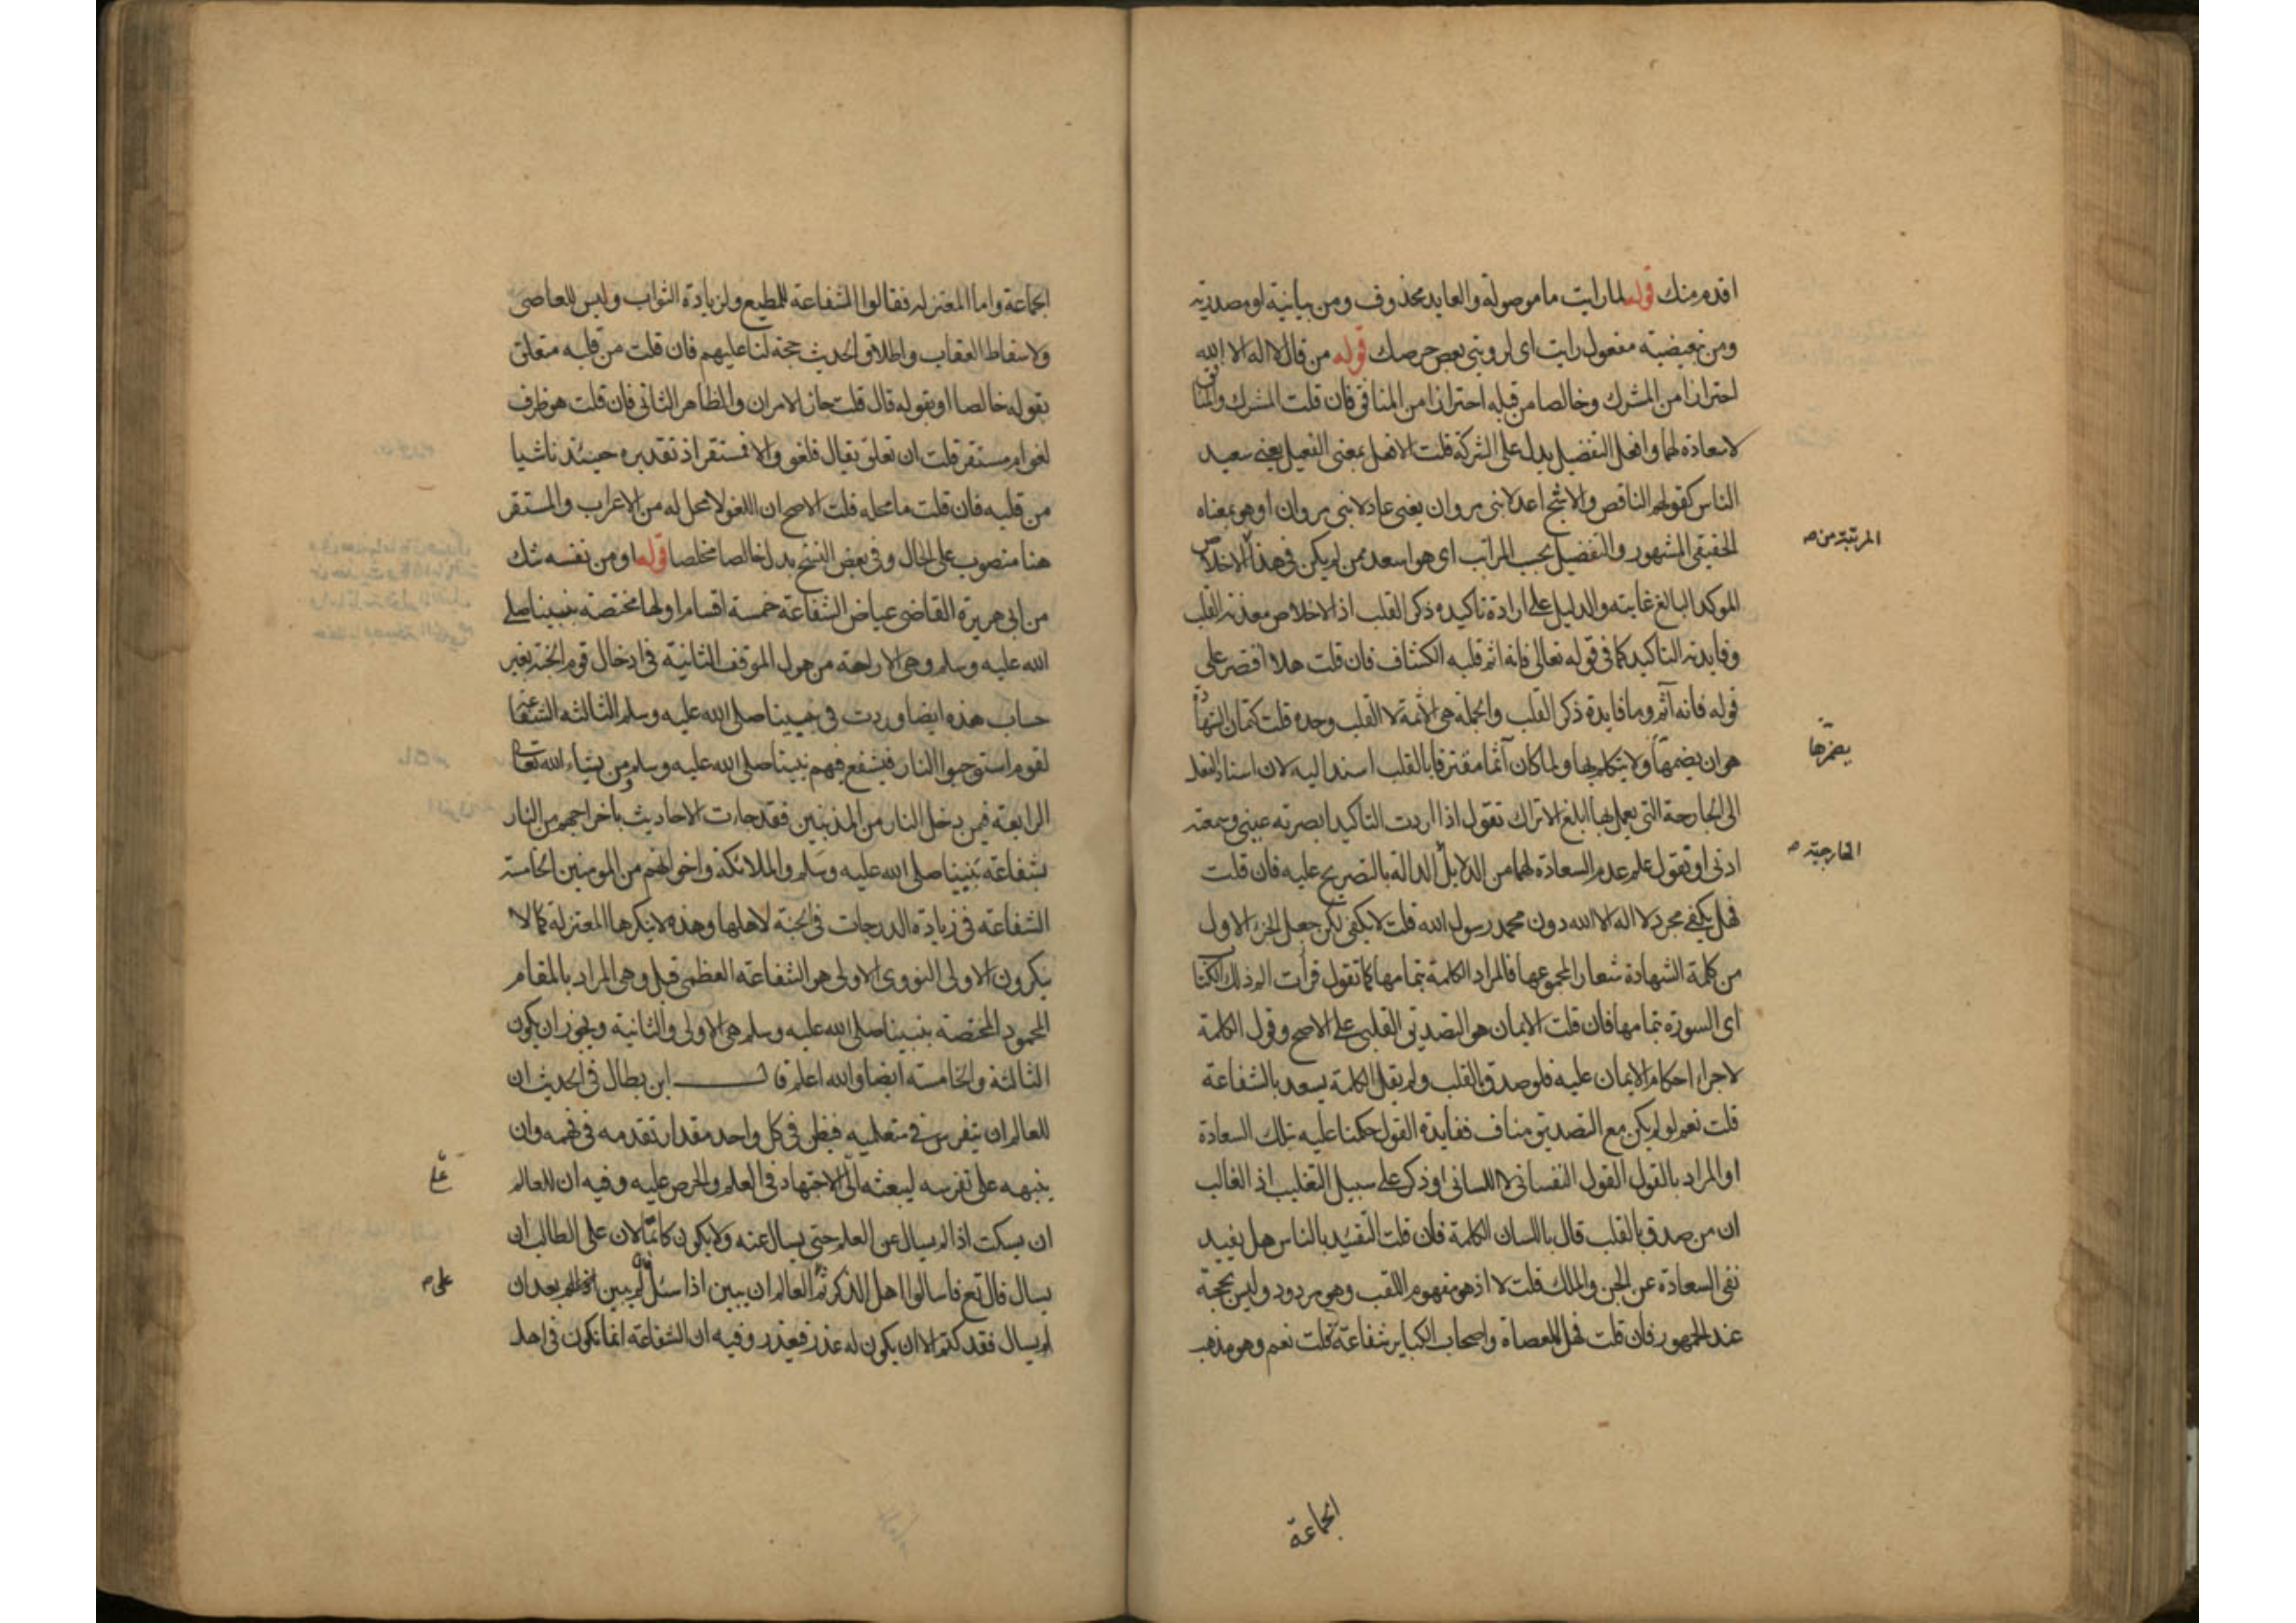 اقدم منك قوله لما رايت ما موصولة والعايد محذوف ومن بيانية او مصدرية
ومن تبعيضية مفعول رايت اى لرويتى بعض حرصك قوله من قال لا اله الا الله
احترازا من المشرك وخالصا من قبله احترازا من المنافق فان قلت المشرك والمنافق
لا سعادة لهما وافعل التفضيل يدل على الشركة قلت الافعل بمعنى الفعيل يعنى سعيد
الناس كقولهم الناقص والاشج اعدلا بنى مروان يعنى عادلا بنى مروان او هو بمعناه
الحقيقى المشهور والتفضيل بحسب المراتب اى هو اسعد ممن لم يكن فى هذا الاخلاص
المرتبة من صح
الموكد البالغ غايته والدليل على ارادة تاكيده ذكر القلب اذ الاخلاص معدنه القلب
وفايدته التاكيد كما فى قوله تعالى فانه اثم قلبه الكشاف فان قلت هلا اقتصر على
قوله فانه آثم وما فايدة ذكر القلب والجملة هى الآثمة لا القلب وحده قلت كتمان الشهادة
هو ان يضمها ولا يتكلم بها ولما كان آثما مقترفا بالقلب اسند اليه لان اسناد الفعل
يضمرها
الى الجارحة التى يعمل بها ابلغ الا تراك تقول اذا اردت التاكيد ابصرته عينى وسمعته
اذنى او تقول علم عدم السعادة لهما من الدلايل الدالة بالتصريح عليه فان قلت
الخارجية صح
فهل يكفى مجرد لا اله الا الله دون محمد رسول الله قلت لا يكفى لكن جعل الجزء الاول
من كلمة الشهادة شعارا لمجموعها فالمراد الكلمة بتمامها كما تقول قرأت الم ذلك الكتاب
اى السورة بتمامها فان قلت الايمان هو التصديق القلبى على الاصح وقول الكلمة
لاجراء احكام الايمان عليه فلو صدق بالقلب ولم يقل الكلمة يسعد بالشفاعة
قلت نعم لو لم يكن مع التصديق مناف ففايدة القول حكمنا عليه بتلك السعادة
او المراد بالقول القول النفسانى لا اللسانى او ذكر على سبيل التغليب اذ الغالب
ان من صدق بالقلب قال باللسان الكلمة فان قلت التقييد بالناس هل يفيد
نفى السعادة عن الجن والملك قلت لا اذ هو مفهوم اللقب وهو مردود وليس بحجة
عند الجمهور فان قلت فهل للعصاة واصحاب الكباير شفاعة قلت نعم وهو مذهب
الجماعة
الجماعة واما المعتزلة فقالوا الشفاعة للمطيع ولزيادة الثواب وليس للعاصى
ولاسقاط العقاب واطلاق الحديث حجة لنا عليهم فان قلت من قلبه متعلق
بقوله خالصا او بقوله قال قلت جاز الامران والظاهر الثانى فان قلت هو ظرف
لغو ام مستقر قلت ان تعلق بقال فلغو والا فمستقر اذ تقديره حينئذ ناشيا
من قلبه فان قلت ما محله قلت الاصح ان اللغو لا محل له من الاعراب والمستقر
هنا منصوب على الحال وفى بعض النسخ بدل خالصا مخلصا قوله او من نفسه شك
من ابى هريرة القاضى عياض الشفاعة خمسة اقسام اولها مختصة بنبينا صلى
الله عليه وسلم وهى الاراحة من هول الموقف الثانية فى ادخال قوم الجنة بغير
حساب هذه ايضا وردت فى نبينا صلى الله عليه وسلم الثالثة الشفاعة
لقوم استوجبوا النار فيشفع فيهم نبينا صلى الله عليه وسلم ومن يشاء الله تعالى
الرابعة فيمن يدخل النار من المذنبين فقد جاءت الاحاديث باخراجهم من النار
بشفاعة نبينا صلى الله عليه وسلم والملائكة واخوانهم من المومنين الخامسة
الشفاعة فى زيادة الدرجات فى الجنة لاهلها وهذه لا ينكرها المعتزلة كما لا
ينكرون الاولى النووى الاولى هو الشفاعة العظمى قيل وهى المراد بالمقام
المحمود المختصة بنبينا صلى الله عليه وسلم هى الاولى والثانية ويجوز ان يكون
الثالثة والخامسة ايضا والله اعلم قال ابن بطال فى الحديث ان
للعالم ان يتفرس فى متعلميه فيظن فى كل واحد مقدار تقدمه فى فهمه وان
ينبهه على تفرسه ليبعثه الى الاجتهاد فى العلم والحرص عليه وفيه ان للعالم
ان يسكت اذا لم يسال عن العلم حتى يسال عنه ولا يكون كاتما لان على الطالب ان
يسال قال تع فاسالوا اهل الذكر ثم العالم ان يبين اذا سئل فان لم يبين بعد ان
على صح
لم يسال فقد كتم الا ان يكون له عذر فيعذر وفيه ان الشفاعة انما تكون فى اهل